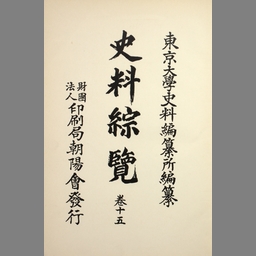 東京大學史料編纂所編纂
史料綜覽
卷十五
財團法人印刷局朝陽會發行